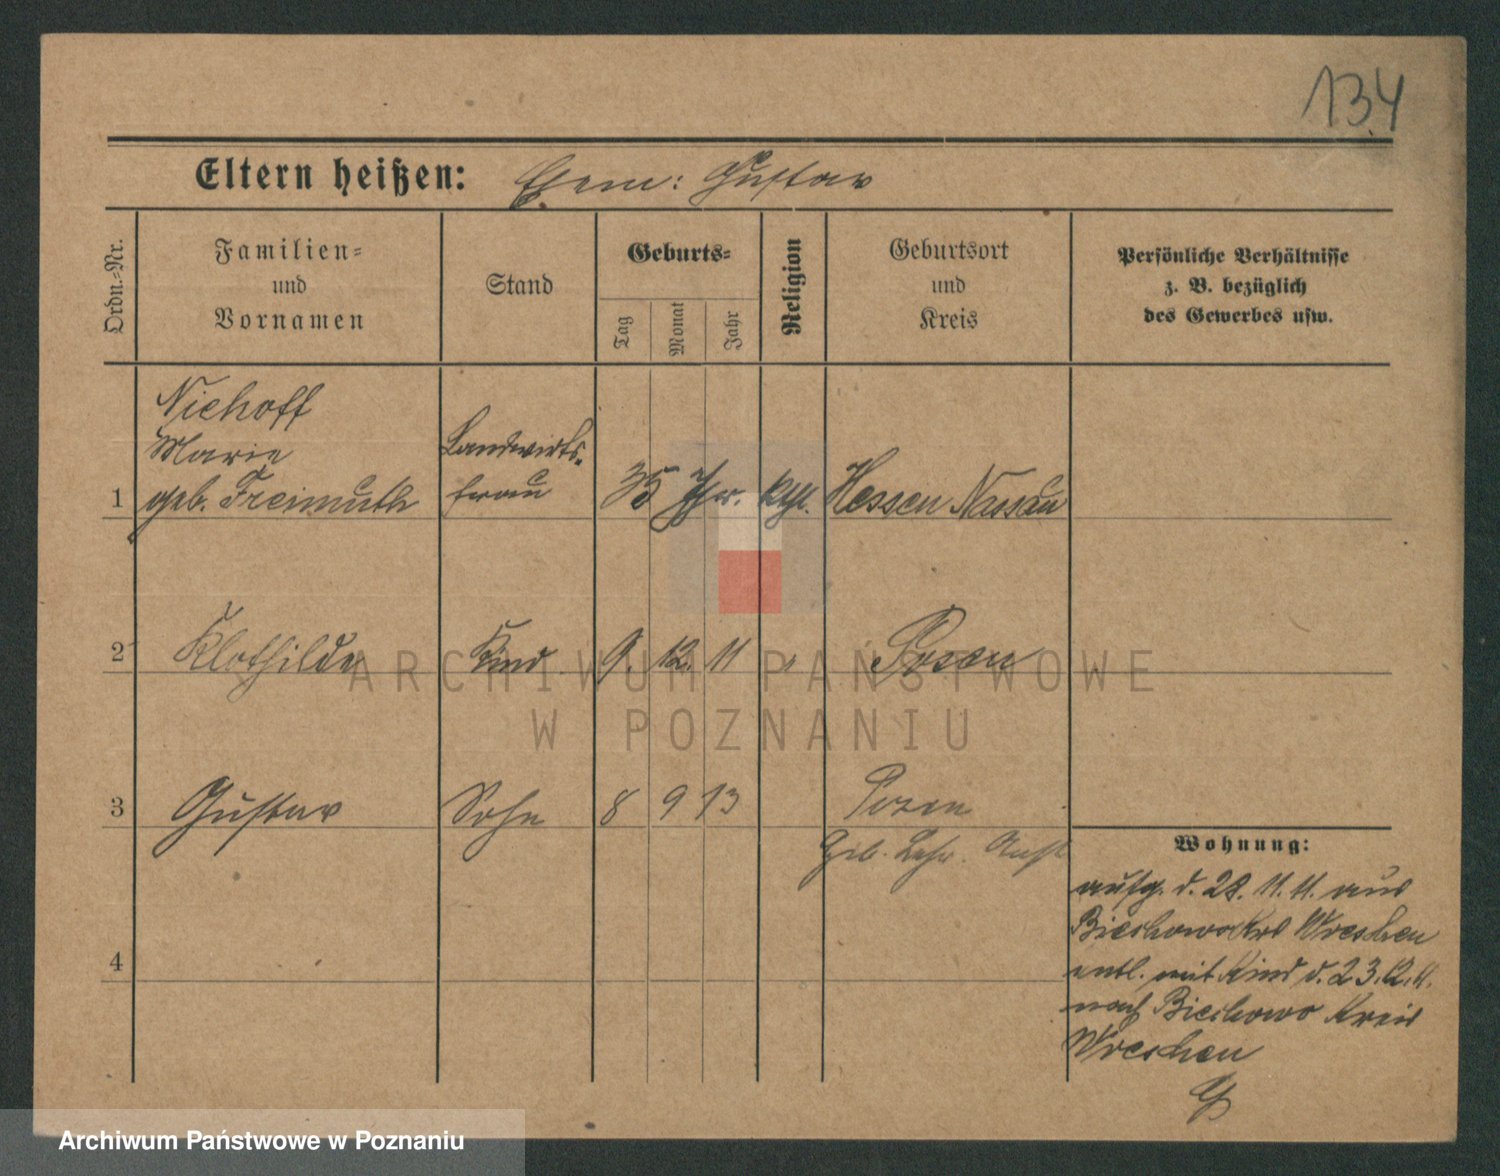 134
Eltern heißen: Ehem: Gustav
Ordn.-Nr.
Familien-
und
Vornamen
Stand
Geburts-
Tag
Monat
Jahr
Religion
Geburtsort
und
Kreis
Persönliche Verhältnisse
z. B. bezüglich
des Gewerbes usw.
Niehoff
Marie
1 geb. Freimuth
Landwirts-
frau
35 Jhr. kth. Hessen Nassau
2 Klothilde Kind 9. 12. 11 " Posen
ARCHIWUM PAŃSTWOWE
W POZNANIU
3 Gustav Sohn 8 9 13 Posen
Geb. Lehr. Anst
4
Wohnung:
aufg. d. 28. 11. 11. aus
Biechowo Krs Wreschen
entl. mit Kind d. 23.12.11.
nach Biechowo Kreis
Wreschen
Archiwum Państwowe w Poznaniu